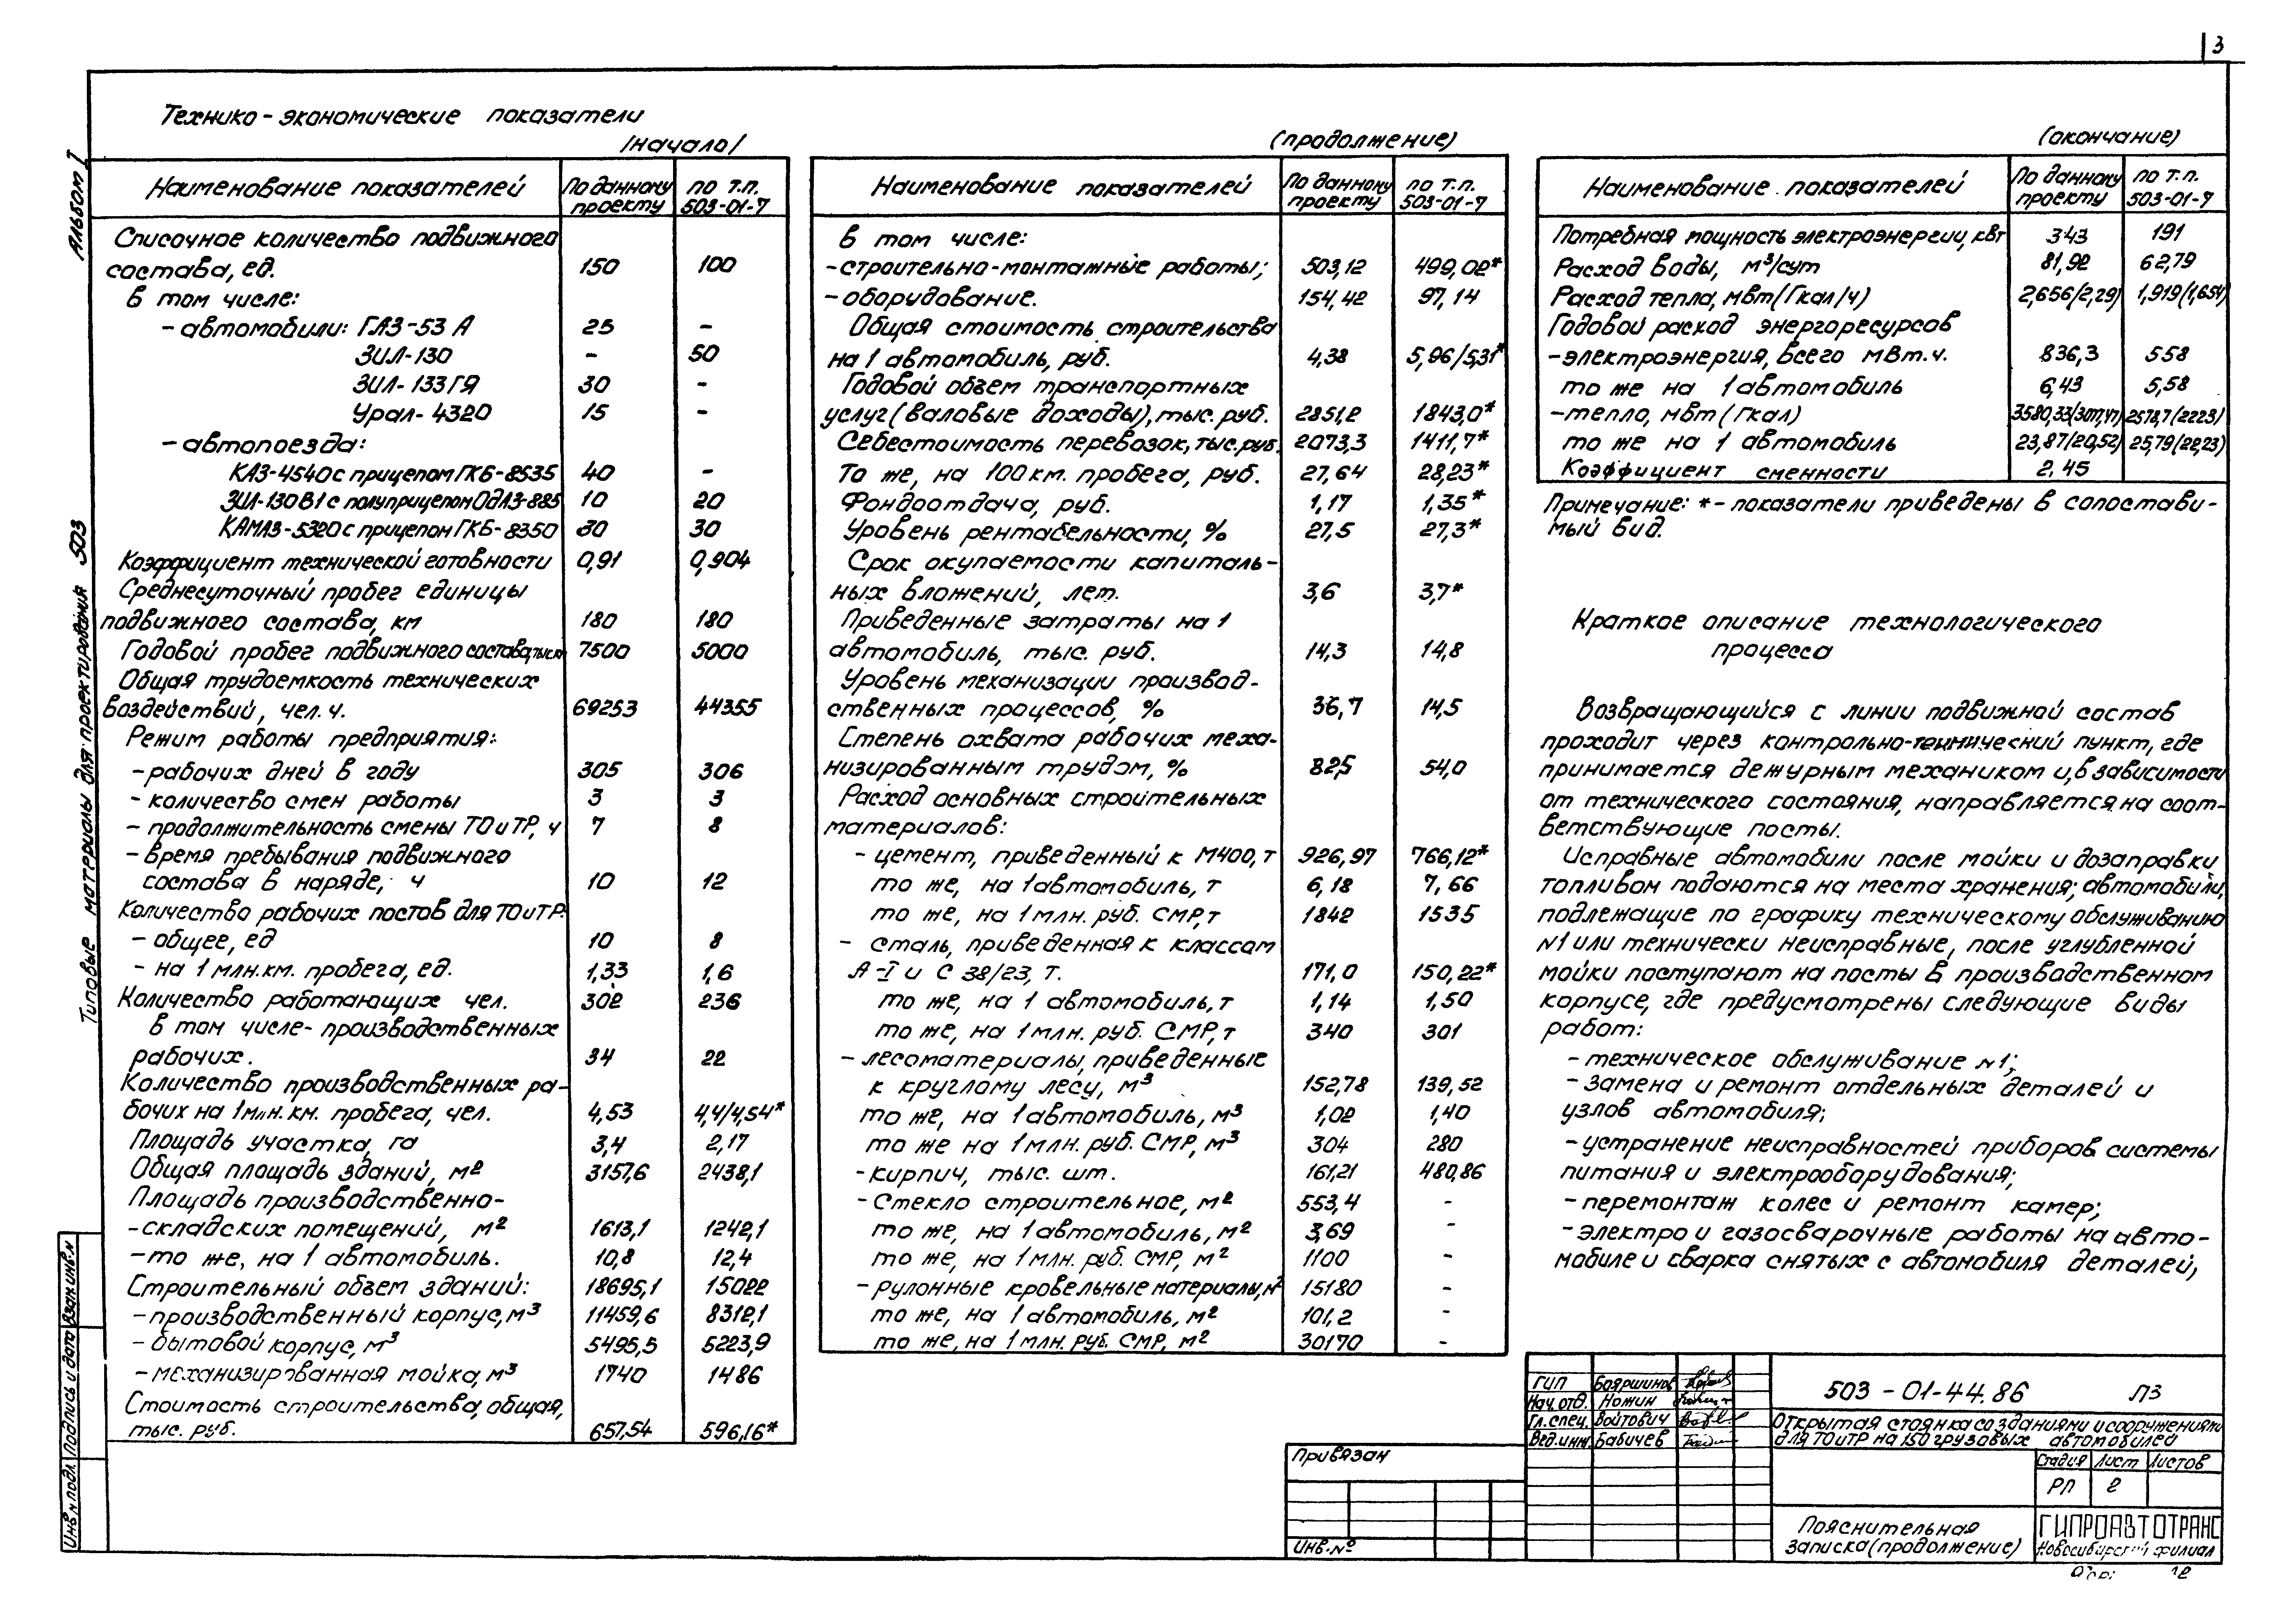 3
Альбом I
Типовые материалы для проектирования 503
Технико-экономические показатели
/начало/
Наименование показателей | По данному проекту | по т.п. 503-01-7
Списочное количество подвижного
состава, ед. 150 100
в том числе:
- автомобили: ГАЗ-53 А 25 -
ЗИЛ-130 - 50
ЗИЛ-133ГЯ 30 -
Урал-4320 15 -
- автопоезда:
КАЗ-4540 с прицепом ГКБ-8535 40 -
ЗИЛ-130В1 с полуприцепом ОдАЗ-885 10 20
КАМАЗ-5320 с прицепом ГКБ-8350 30 30
Коэффициент технической готовности 0,91 0,904
Среднесуточный пробег единицы
подвижного состава, км 180 180
Годовой пробег подвижного состава, тыс.км 7500 5000
Общая трудоемкость технических
воздействий, чел.ч. 69253 44355
Режим работы предприятия:
- рабочих дней в году 305 306
- количество смен работы 3 3
- продолжительность смены ТО и ТР, ч 7 8
- время пребывания подвижного
состава в наряде, ч 10 12
Количество рабочих постов для ТО и ТР:
- общее, ед 10 8
- на 1 млн.км. пробега, ед. 1,33 1,6
Количество работающих чел. 302 236
в том числе - производственных
рабочих. 34 22
Количество производственных ра-
бочих на 1 млн. км. пробега, чел. 4,53 4,4/4,54*
Площадь участка, га 3,4 2,17
Общая площадь зданий, м2 3157,6 2438,1
Площадь производственно-
- складских помещений, м2 1613,1 1242,1
- то же, на 1 автомобиль. 10,8 12,4
Строительный объем зданий: 18695,1 15022
- производственный корпус, м3 11459,6 8312,1
- бытовой корпус, м3 5495,5 5223,9
- механизированная мойка, м3 1740 1486
Стоимость строительства, общая,
тыс. руб. 657,54 596,16*
(продолжение)
Наименование показателей | По данному проекту | по т.п. 503-01-7
в том числе:
- строительно-монтажные работы; 503,12 499,02*
- оборудование. 154,42 97,14
Общая стоимость строительства
на 1 автомобиль, руб. 4,38 5,96/5,31*
Годовой объем транспортных
услуг (валовые доходы), тыс. руб. 2851,2 1843,0*
Себестоимость перевозок, тыс.руб. 2073,3 1411,7*
То же, на 100 км. пробега, руб. 27,64 28,23*
Фондоотдача, руб. 1,17 1,35*
Уровень рентабельности, % 27,5 27,3*
Срок окупаемости капиталь-
ных вложений, лет. 3,6 3,7*
Приведенные затраты на 1
автомобиль, тыс. руб. 14,3 14,8
Уровень механизации производ-
ственных процессов, % 36,7 14,5
Степень охвата рабочих меха-
низированным трудом, % 82,5 54,0
Расход основных строительных
материалов:
- цемент, приведенный к М400, т 926,97 766,12*
то же, на 1 автомобиль, т 6,18 7,66
то же, на 1 млн. руб. СМР, т 1842 1535
- сталь, приведенная к классам
А-I и С 38/23, т. 171,0 150,22*
то же, на 1 автомобиль, т 1,14 1,50
то же, на 1 млн. руб. СМР, т 340 301
- лесоматериалы, приведенные
к круглому лесу, м3 152,78 139,52
то же, на 1 автомобиль, м3 1,02 1,40
то же на 1 млн. руб. СМР, м3 304 280
- кирпич, тыс. шт. 161,21 480,86
- Стекло строительное, м2 553,4 -
то же, на 1 автомобиль, м2 3,69 -
то же, на 1 млн. руб. СМР, м2 1100 -
- рулонные кровельные материалы, м2 15180 -
то же, на 1 автомобиль, м2 101,2 -
то же, на 1 млн. руб. СМР, м2 30170 -
(окончание)
Наименование показателей | По данному проекту | по т.п. 503-01-7
Потребная мощность электроэнергии, кВт 343 191
Расход воды, м3/сут 81,92 62,79
Расход тепла, мвт (Гкал/ч) 2,656/2,29) 1,919(1,654)
Годовой расход энергоресурсов
- электроэнергия, всего мВт.ч. 836,3 558
то же на 1 автомобиль 6,43 5,58
- тепло, мвт (Гкал) 3580,33/3077,47) 2578,7/2223)
то же на 1 автомобиль 23,87/20,52) 25,79(22,23)
Коэффициент сменности 2,45
Примечание: * - показатели приведены в сопостави-
мый вид.
Краткое описание технологического
процесса
Возвращающийся с линии подвижной состав
проходит через контрольно-технический пункт, где
принимается дежурным механиком и, в зависимости
от технического состояния, направляется на соот-
ветствующие посты.
Исправные автомобили после мойки и дозаправки
топливом подаются на места хранения; автомобили,
подлежащие по графику техническому обслуживанию
N1 или технически неисправные, после углубленной
мойки поступают на посты в производственном
корпусе, где предусмотрены следующие виды
работ:
- техническое обслуживание N1;
- замена и ремонт отдельных деталей и
узлов автомобиля;
- устранение неисправностей приборов системы
питания и электрооборудования;
- перемонтаж колес и ремонт камер;
- электро и газосварочные работы на авто-
мобиле и сварка снятых с автомобиля деталей;
ГИП Бояршинов
Нач.отд. Ножин
Гл.спец. Войтович
Вед.инж. Бабичев
503-01-44.86 ПЗ
Открытая стоянка со зданиями и сооружениями
для ТО и ТР на 150 грузовых автомобилей
Стадия Лист Листов
РП 2
Пояснительная
записка (продолжение)
ГИПРОАВТОТРАНС
Новосибирский филиал
Привязан
Инв.№
Инв.N подл. Подпись и дата Взам.инв.N
12